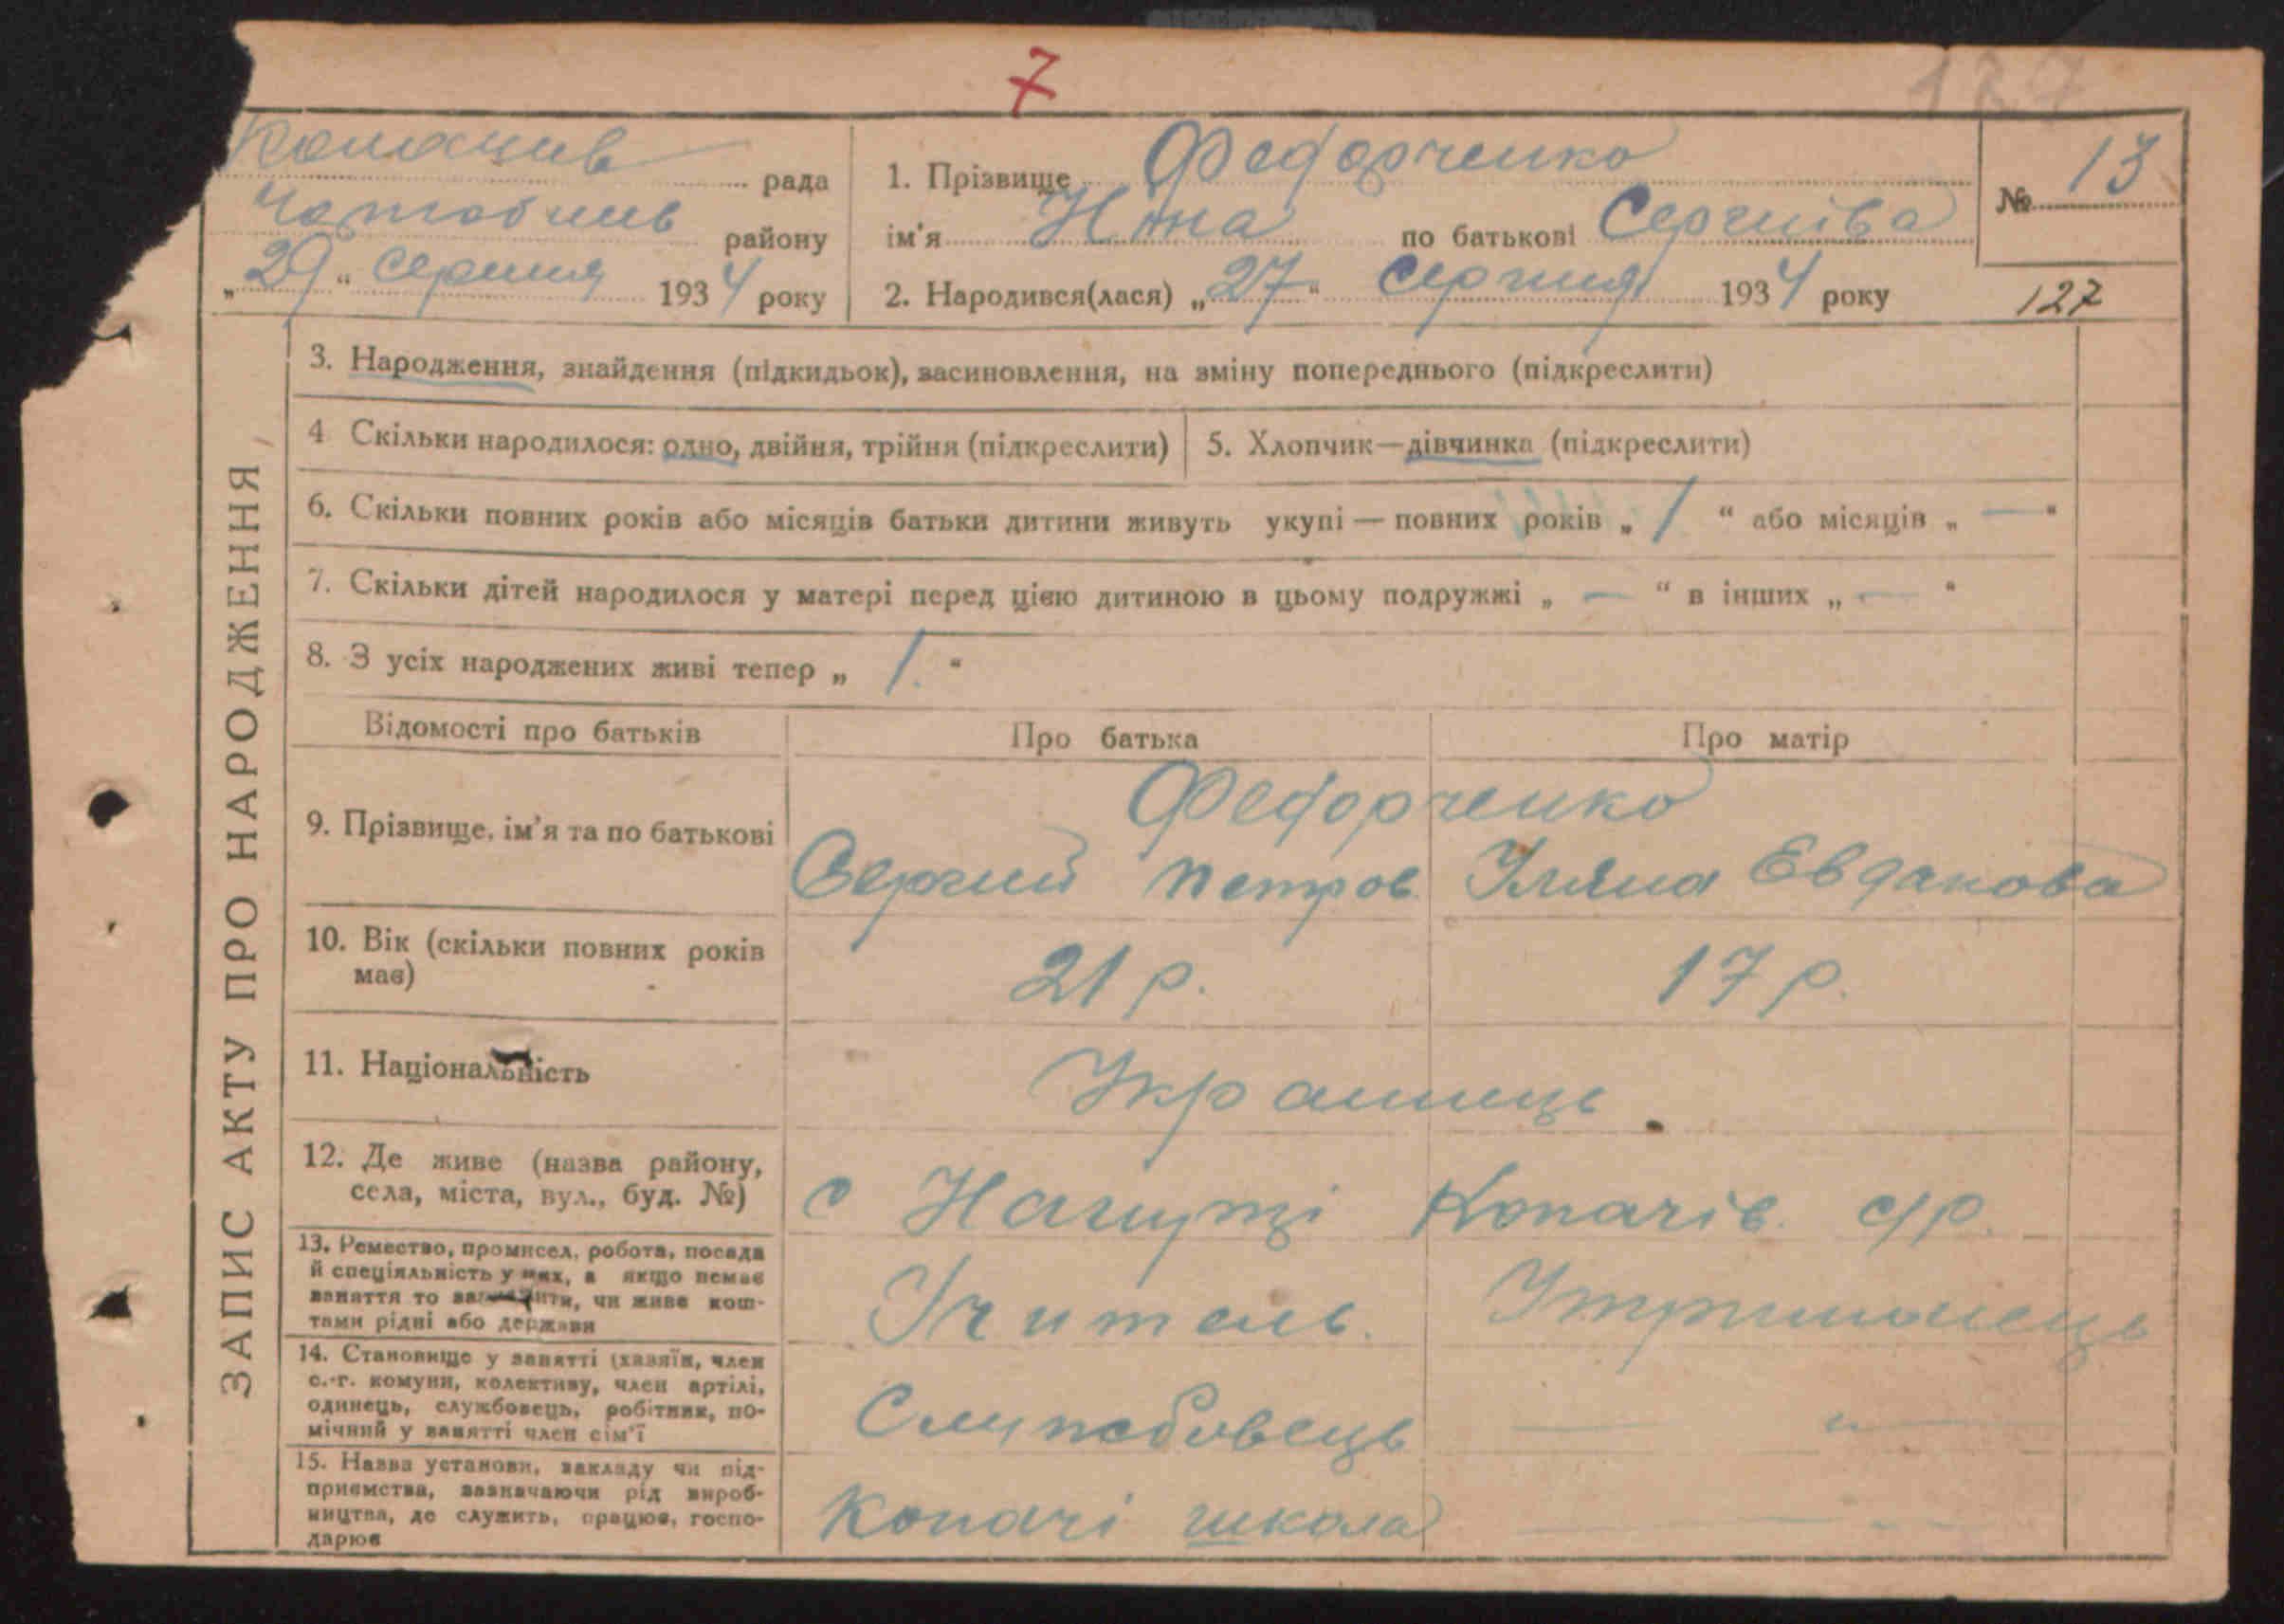 7
127
Копачив рада
района
"29" серпня 1934 року
1. Прізвище Федорченко
ім'я Нина по батькові Сергиїва
2. Народився(лася) „27" Серпня 1934 року
№ 13
127
ЗАПИС АКТУ ПРО НАРОДЖЕННЯ
3. Народження, знайдення (підкидьок), засиновлення, на зміну попереднього (підкреслити)
4 Скільки народилося: одно, двійня, трійня (підкреслити)
5. Хлопчик—дівчинка (підкреслити)
6. Скільки повних років або місяців батьки дитини живуть укупі — повних років „ 1 " або місяців „ — "
7. Скільки дітей народилося у матері перед цією дитиною в цьому подружжі „ — " в інших „ — "
8. З усіх народжених живі тепер „ 1. "
Відомості про батьків
Про батька
Про матір
9. Прізвище, ім'я та по батькові
Федорченко
Сергий Петров.
Уляна Евдакова
10. Вік (скільки повних років
має)
21 р.
17 р.
11. Національність
Украинець
12. Де живе (назва району,
села, міста, вул., буд. №)
с Нагирці Копачів. с/р.
13. Ремество, промисел, робота, посада
й спеціяльність у них, а якщо немає
заняття то зазначити, чи живе кош-
тами рідні або держави
Учитель.
Утриманець
14. Становище у занятті (хазяїн, член
с.-г. комуни, колективу, член артілі,
одинець, службовець, робітник, по-
мічний у занятті член сім'ї
Службовець
— „ —
15. Назва установи, закладу чи під-
приємства, зазначаючи рід вироб-
ництва, де служить, працює, госпо-
дарює
Копачі школа